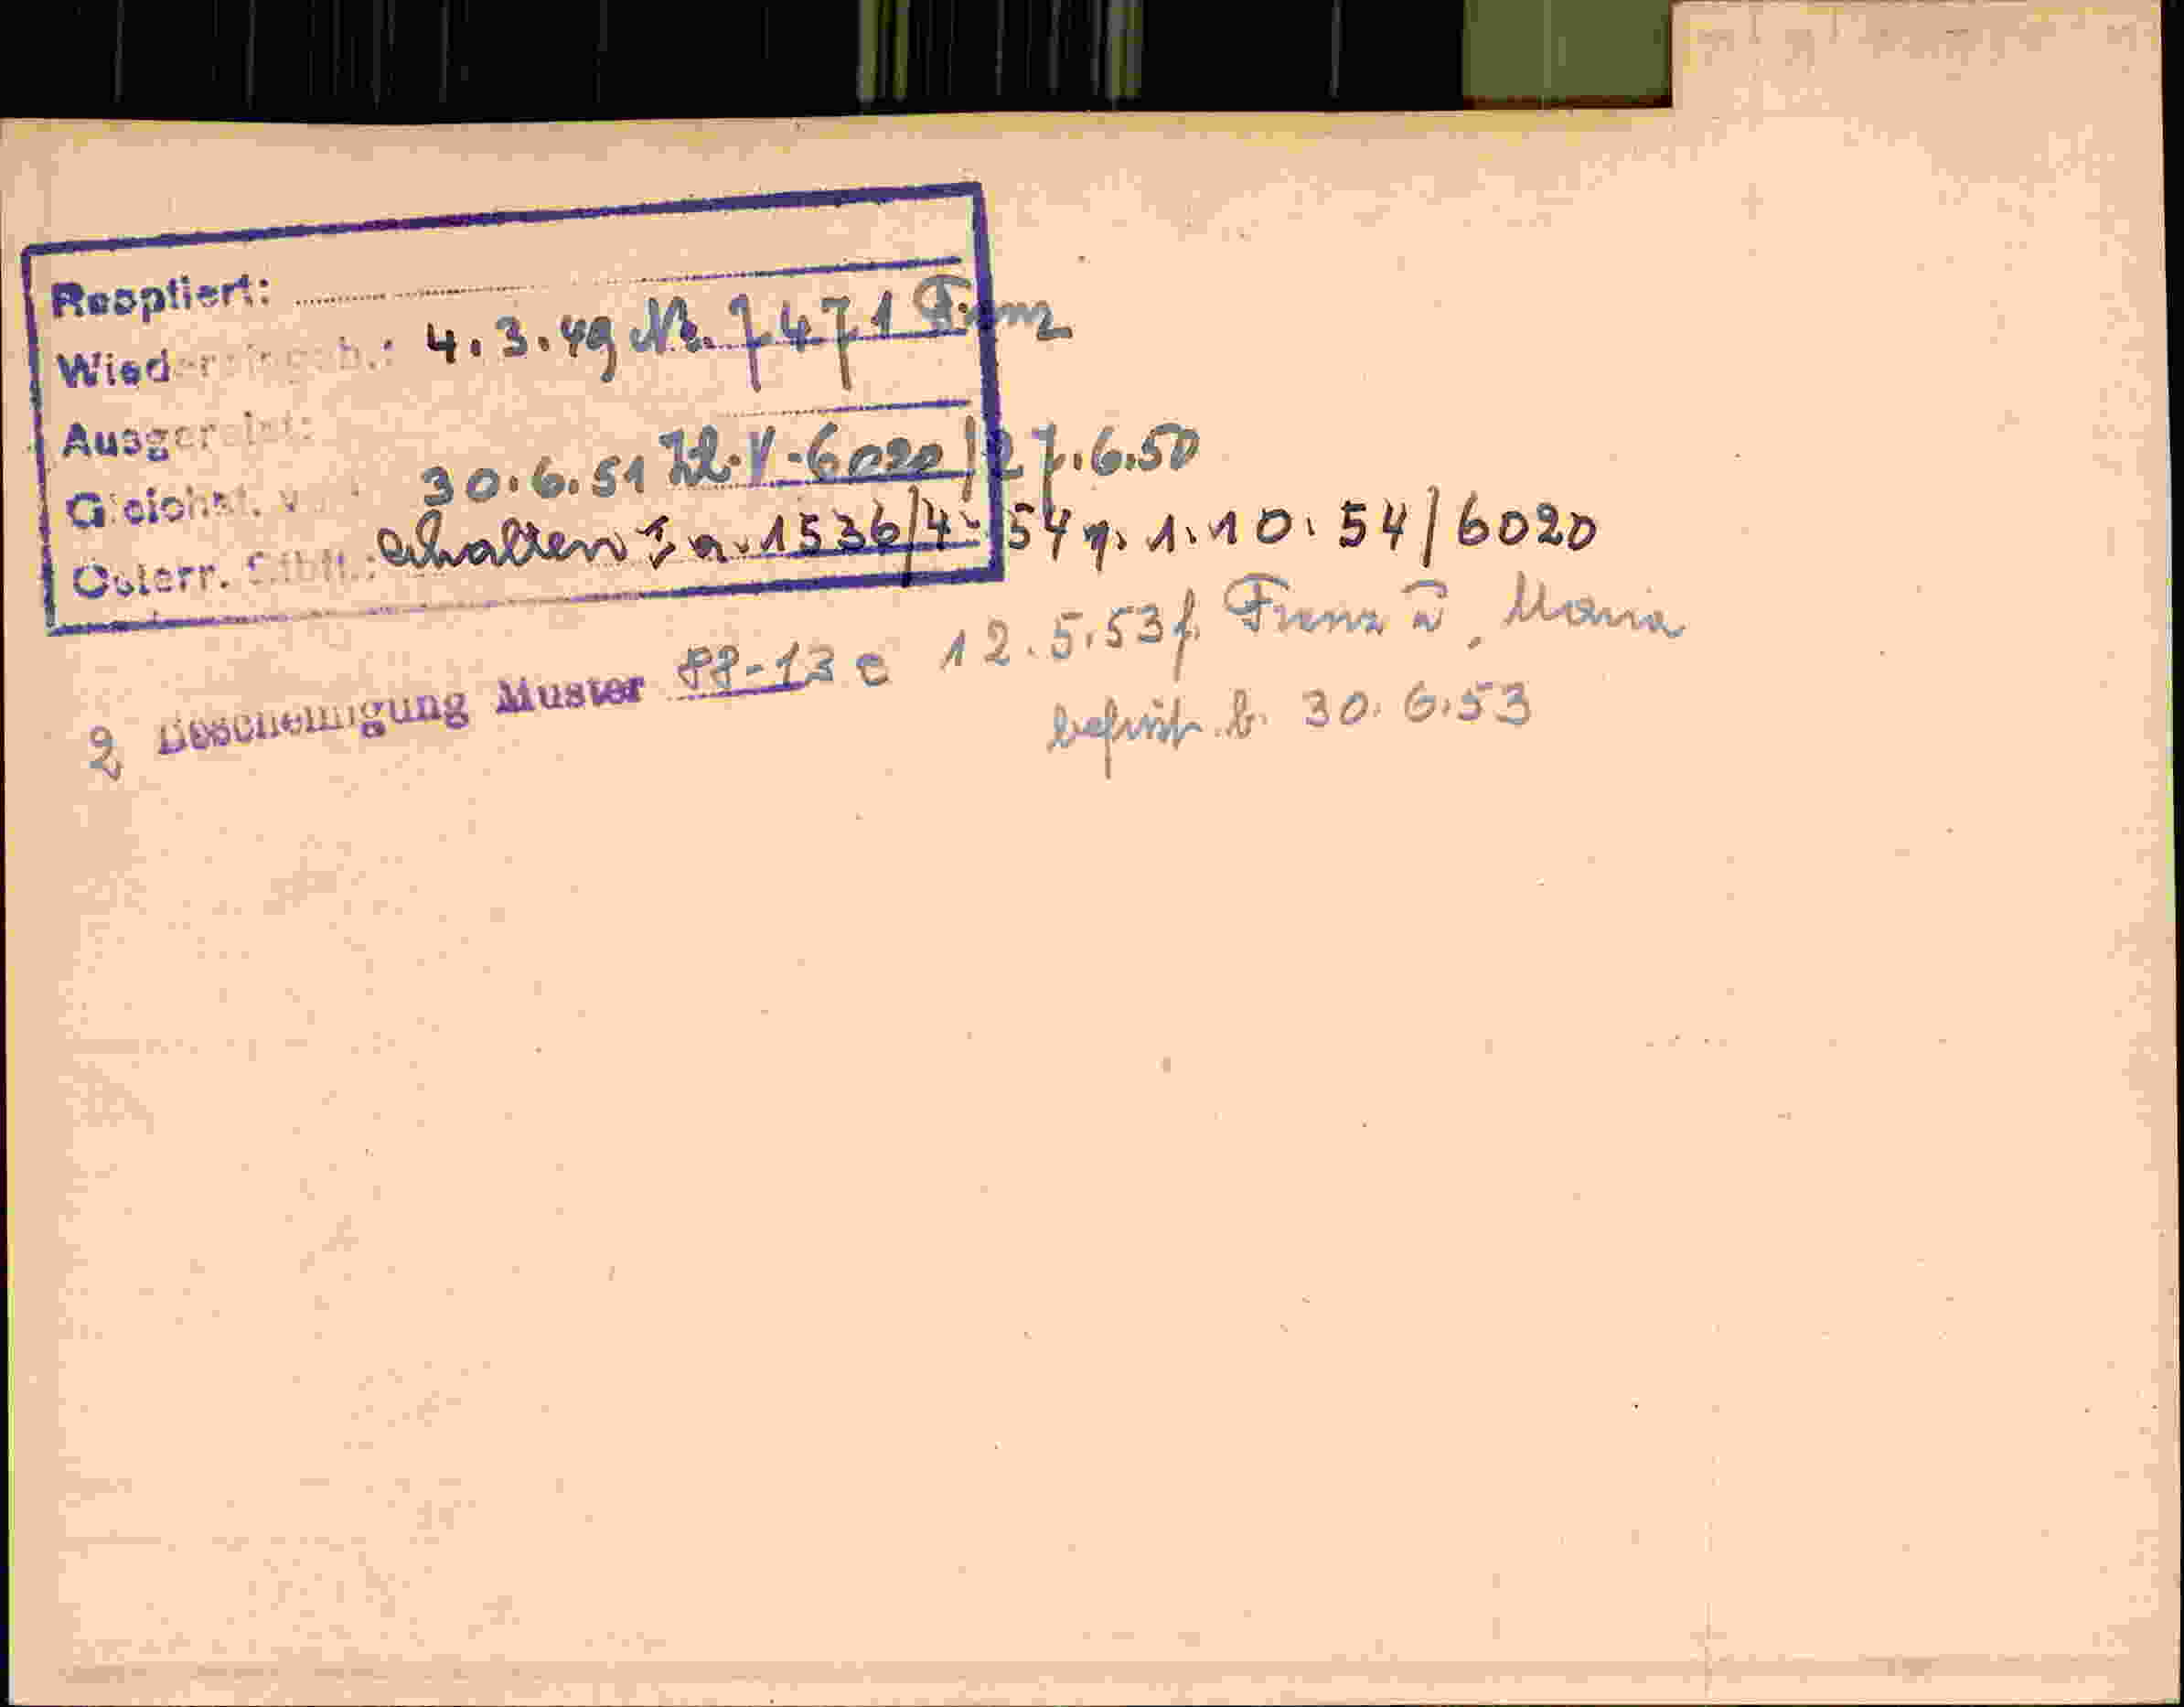 Reoptiert:
Wiedereingeb.: 4.3.49 Nr. 7471 Franz
Ausgereist:
Gleichst. v. 30.6.51 Zl. V-6020/27.6.50
Österr. Stbft.: erhalten I a. 1536/4-54 v. 1.10.54/6020
2 Bescheinigung Muster 88-13 e 12.5.53 f. Franz u. Maria
befrist. b. 30.6.53